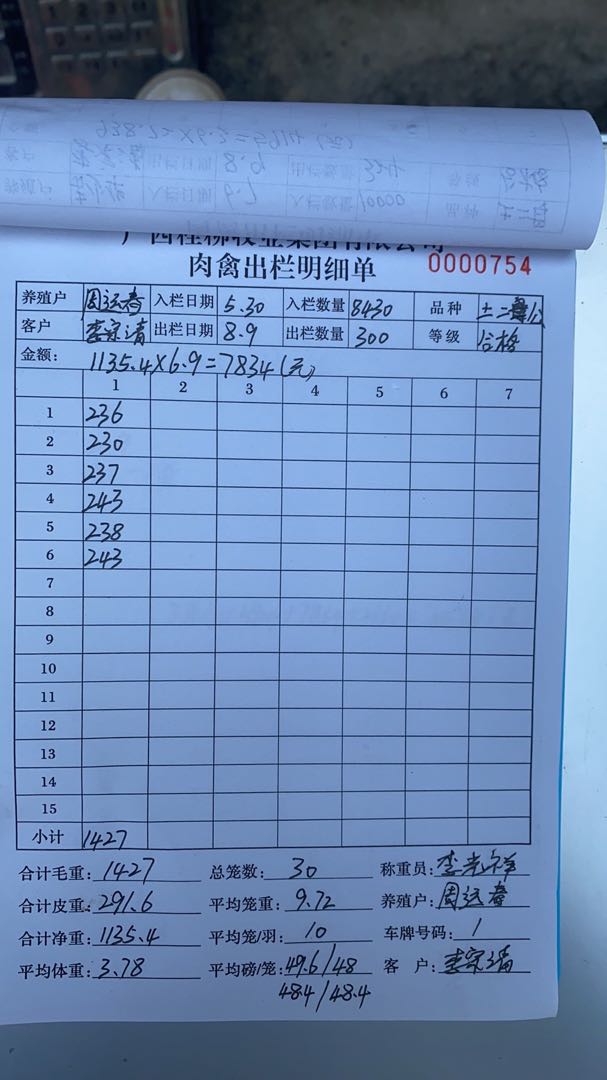 938.22×6.3=5911(元)
客户 出栏日期 8.9 出栏数量 等级 合格
养殖户 入栏日期 入栏数量 10000 品种 土二
广西桂柳牧业集团有限公司
肉禽出栏明细单 0000754
养殖户 周运春 入栏日期 5.30 入栏数量 8430 品种 土二 公
客户 李宗清 出栏日期 8.9 出栏数量 300 等级 合格
金额: 1135.4×6.9=7834(元)
1 2 3 4 5 6 7
1 236
2 230
3 237
4 243
5 238
6 243
7
8
9
10
11
12
13
14
15
小计 1427
合计毛重: 1427 总笼数: 30 称重员: 李光祥
合计皮重: 291.6 平均笼重: 9.72 养殖户: 周运春
合计净重: 1135.4 平均笼/羽: 10 车牌号码: 1
平均体重: 3.78 平均磅/笼: 49.6/48 客 户: 李宗清
48.4/48.4